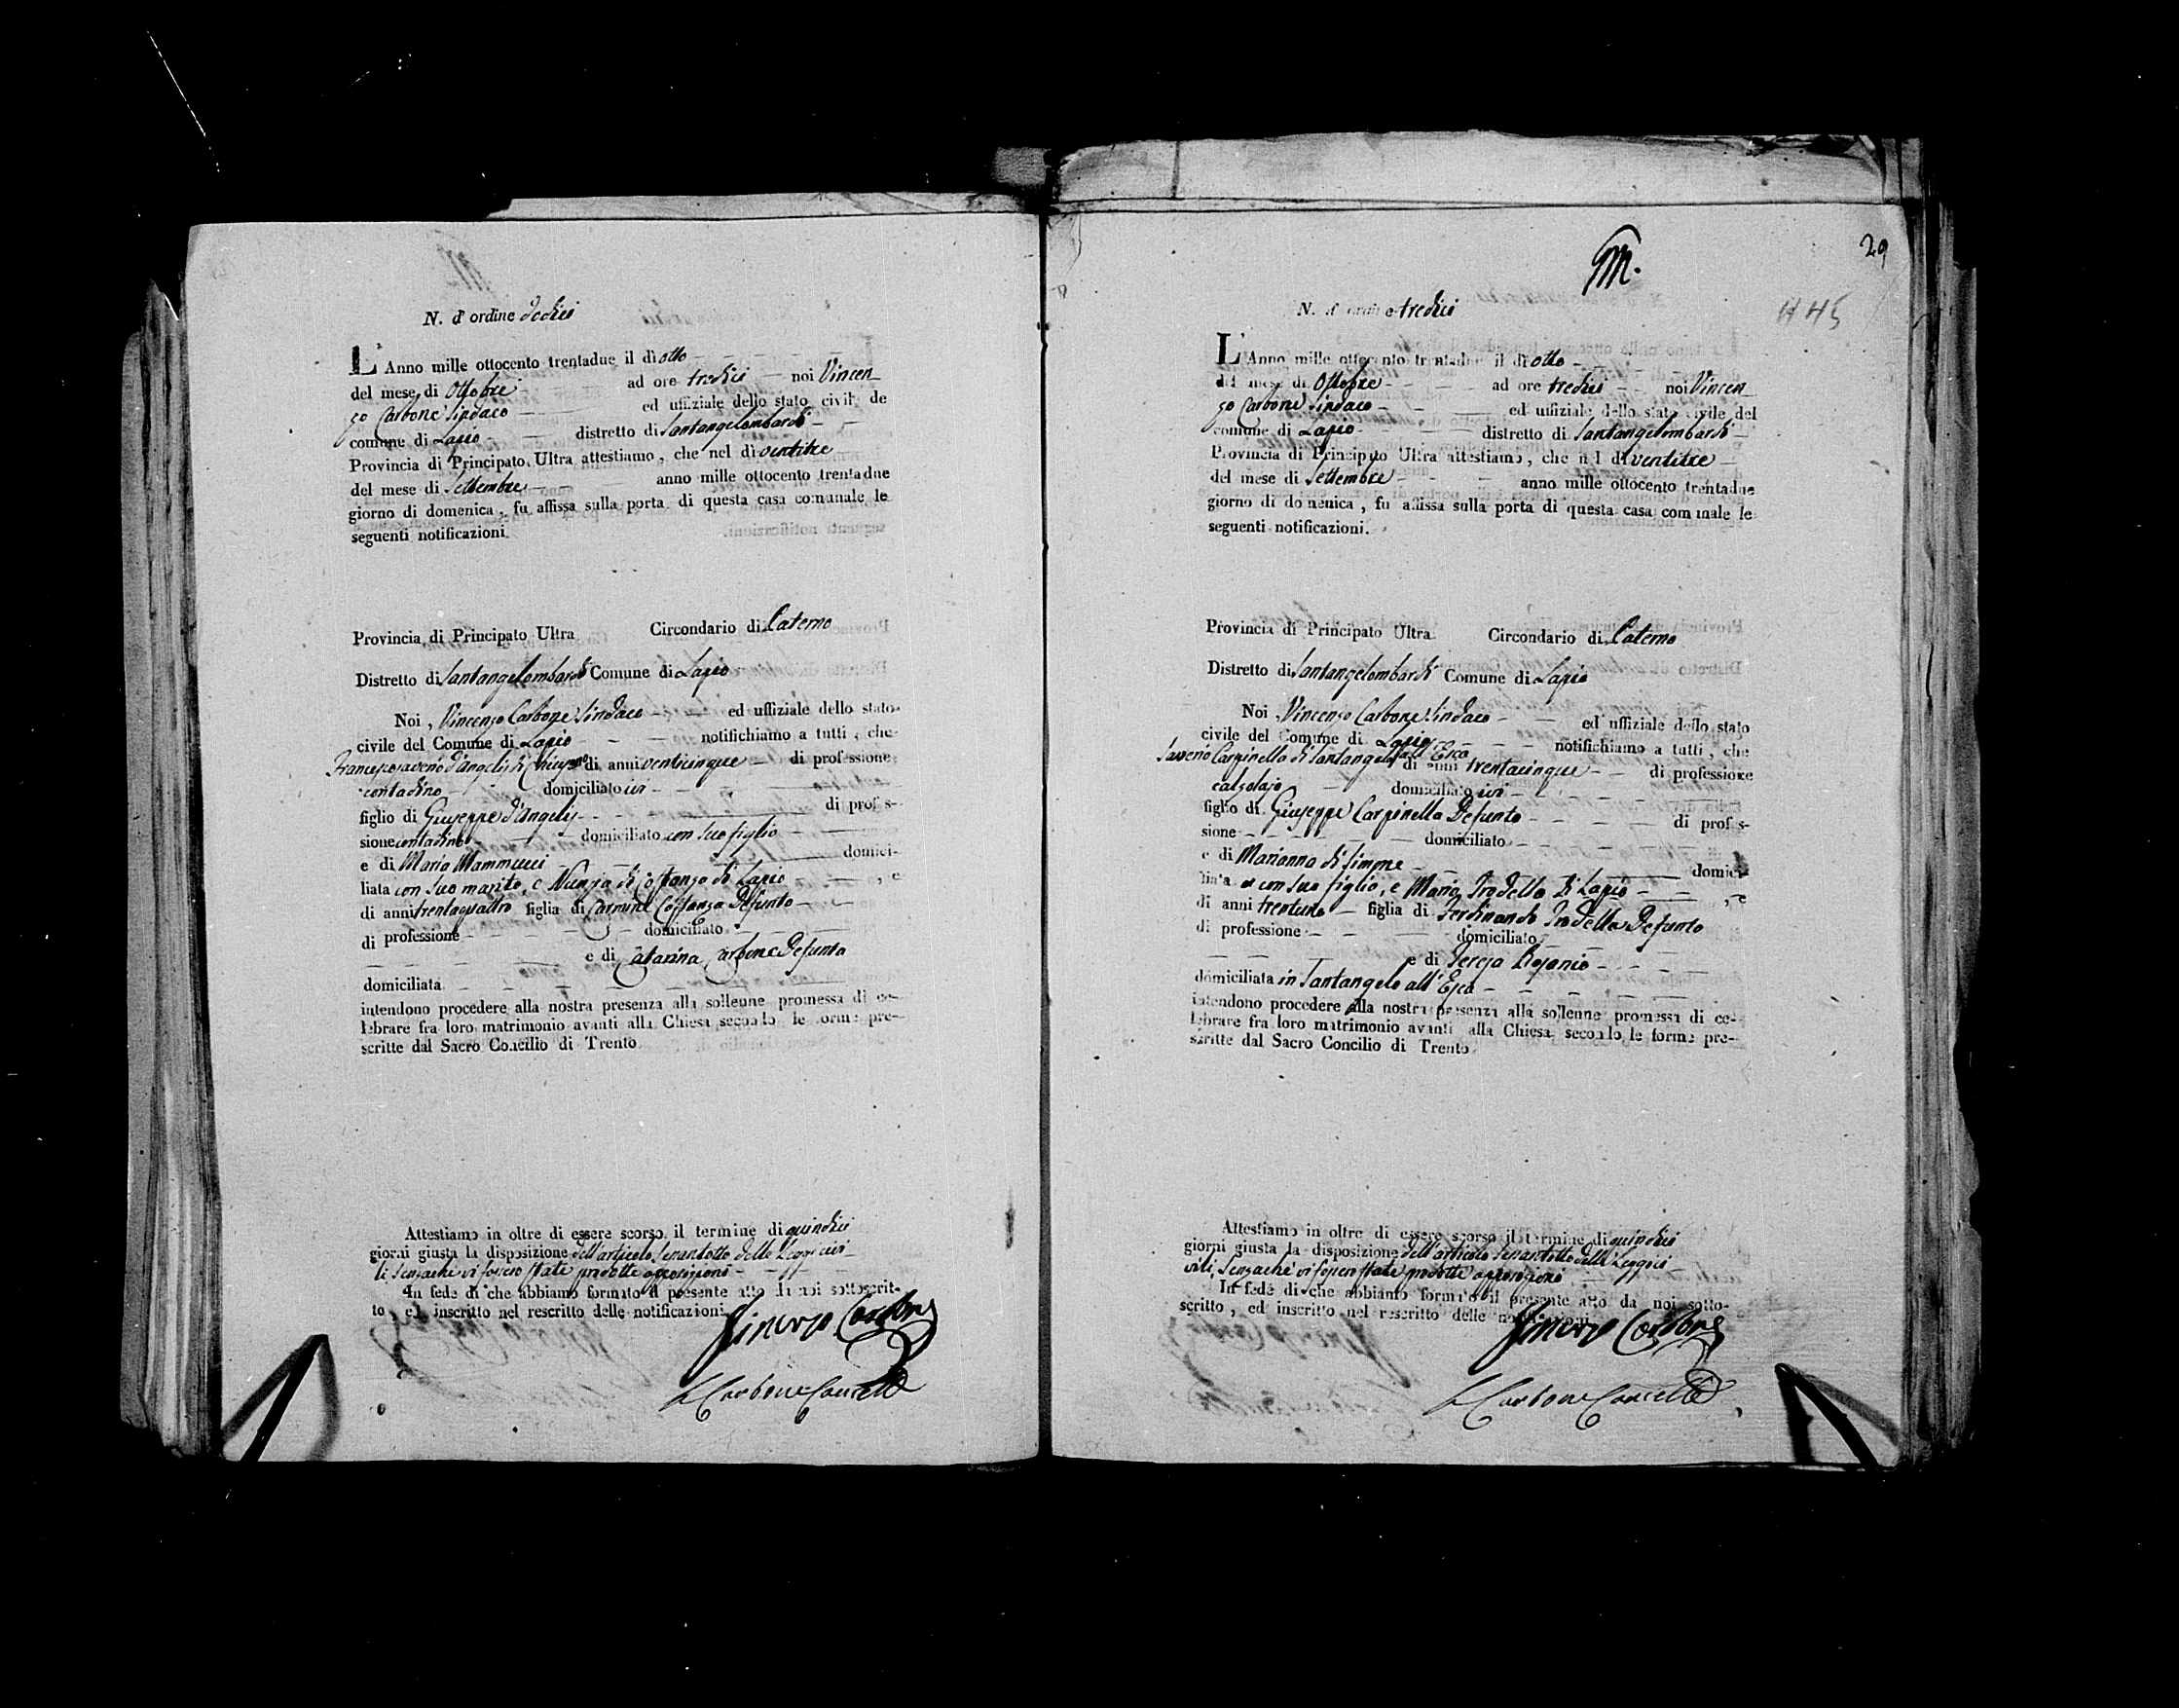 N. d'ordine dodici
L'Anno mille ottocento trentadue il dì otto
del mese di Ottobre ad ore tredici noi Vincen
zo Carbone Sindaco ed uffiziale dello stato civile de
comune di Lapio distretto di Santangelombardi
Provincia di Principato Ultra attestiamo, che nel dì ventitre
del mese di Settembre anno mille ottocento trentadue
giorno di domenica, fu affissa sulla porta di questa casa comunale le
seguenti notificazioni.
Provincia di Principato Ultra Circondario di Paterno
Distretto di Santangelombardi Comune di Lapio
Noi, Vincenzo Carbone Sindaco ed uffiziale dello stato
civile del Comune di Lapio notifichiamo a tutti, che
Francescosaverio d'Angelis di Chiusano di anni venticinque di professione
contadino domiciliato ivi
figlio di Giuseppe d'Angelis di profes-
sione contadino domiciliato con suo figlio
e di Maria Mammucci domici-
liata con suo marito, e Nunzia di Costanzo di Lapio, e
di anni trentaquattro figlia di Carmine Costanza Defunto
di professione domiciliato
e di Catarina Carbone Defunta
domiciliata
intendono procedere alla nostra presenza alla sollenne promessa di ce-
lebrare fra loro matrimonio avanti alla Chiesa secondo le forme pre-
scritte dal Sacro Concilio di Trento
Attestiamo in oltre di essere scorso il termine di quindici
giorni giusta la disposizione dell'articolo Senantotto delle Leggi civi
li, senzachè vi fossero state prodotte opposizioni
In fede di che abbiamo formato il presente atto da noi sottoscrit-
to ed inscritto nel rescritto delle notificazioni
Vincenzo Carbone
Carbone Cancell
M.
29
N. d'ordine tredici
L'Anno mille ottocento trentadue il dì otto
del mese di Ottobre ad ore tredici noi Vincen
zo Carbone Sindaco ed uffiziale dello stato civile del
comune di Lapio distretto di Santangelombardi
Provincia di Principato Ultra attestiamo, che nel dì ventitre
del mese di Settembre anno mille ottocento trentadue
giorno di domenica, fu affissa sulla porta di questa casa comunale le
seguenti notificazioni.
Provincia di Principato Ultra Circondario di Paterno
Distretto di Santangelombardi Comune di Lapio
Noi, Vincenzo Carbone Sindaco ed uffiziale dello stato
civile del Comune di Lapio notifichiamo a tutti, che
Saverio Carpinella di Santangelo all'Esca di anni trentacinque di professione
calzolajo domiciliato ivi
figlio di Giuseppe Carpinella Defunto di profes-
sione domiciliato
e di Marianna di Simone domici-
liata con suo figlio, e Maria Iradella di Lapio, e
di anni trentuno figlia di Ferdinando Iradella Defunto
di professione domiciliato
e di Teresa
domiciliata in Santangelo all'Esca
intendono procedere alla nostra presenza alla sollenne promessa di ce-
lebrare fra loro matrimonio avanti alla Chiesa secondo le forme pre-
scritte dal Sacro Concilio di Trento.
Attestiamo in oltre di essere scorso il termine di quindici
giorni giusta la disposizione dell'articolo Senantotto delle Leggi ci
vili, senzachè vi fossero state prodotte opposizioni
In fede di che abbiamo formato il presente atto da noi sotto-
scritto, ed inscritto nel rescritto delle notificazioni
Vincenzo Carbone
Carbone Cancell